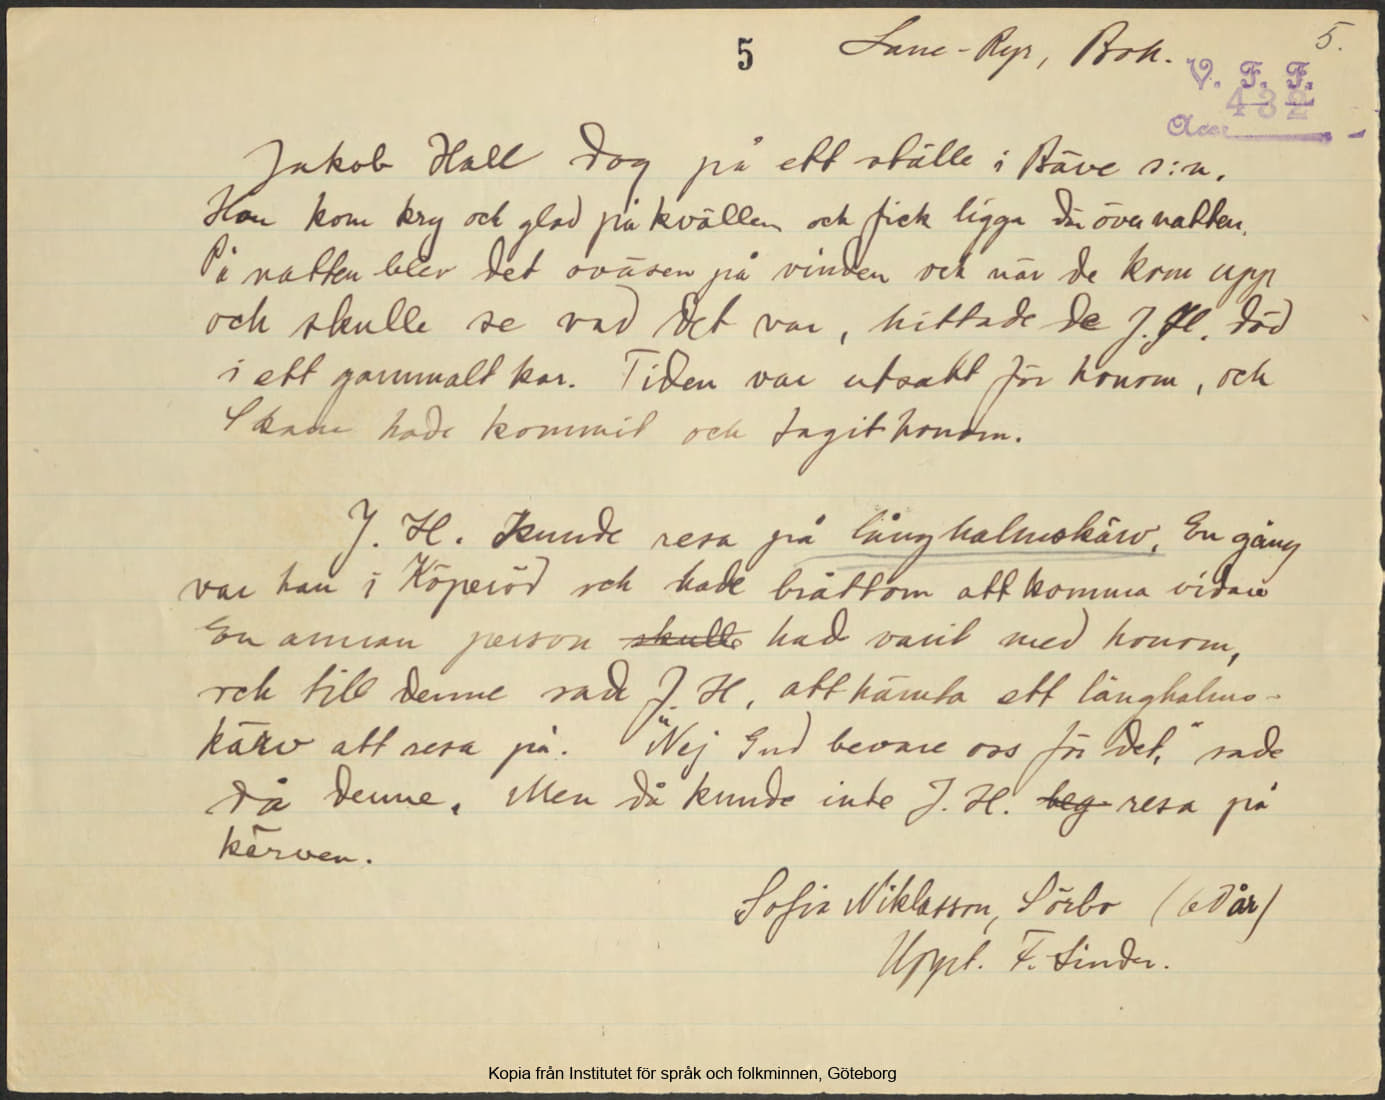 5 Lane-Ryr, Boh. 5.
V. F. F.
Acc. 432
Jakob Hall dog på ett ställe i Bäve s:n.
Han kom kry och glad på kvällen och fick ligga där över natten.
På natten blev det oväsen på vinden och när de kom upp
och skulle se vad det var, hittade de J. H. död
i ett gammalt kar. Tiden var utsatt för honom, och
Skam hade kommit och tagit honom.
J. H. kunde resa på långhalmskärv. En gång
var han i Köperöd och hade bråttom att komma vidare
En annan person skulle had varit med honom,
och till denne sade J. H. att hämta ett långhalms-
kärv att resa på. "Nej Gud bevare oss för det," sade
då denne. Men då kunde inte J. H. beg resa på
kärven.
Sofia Niklasson, Sörbo ( år)
Uppt. F. Linder.
Kopia från Institutet för språk och folkminnen, Göteborg